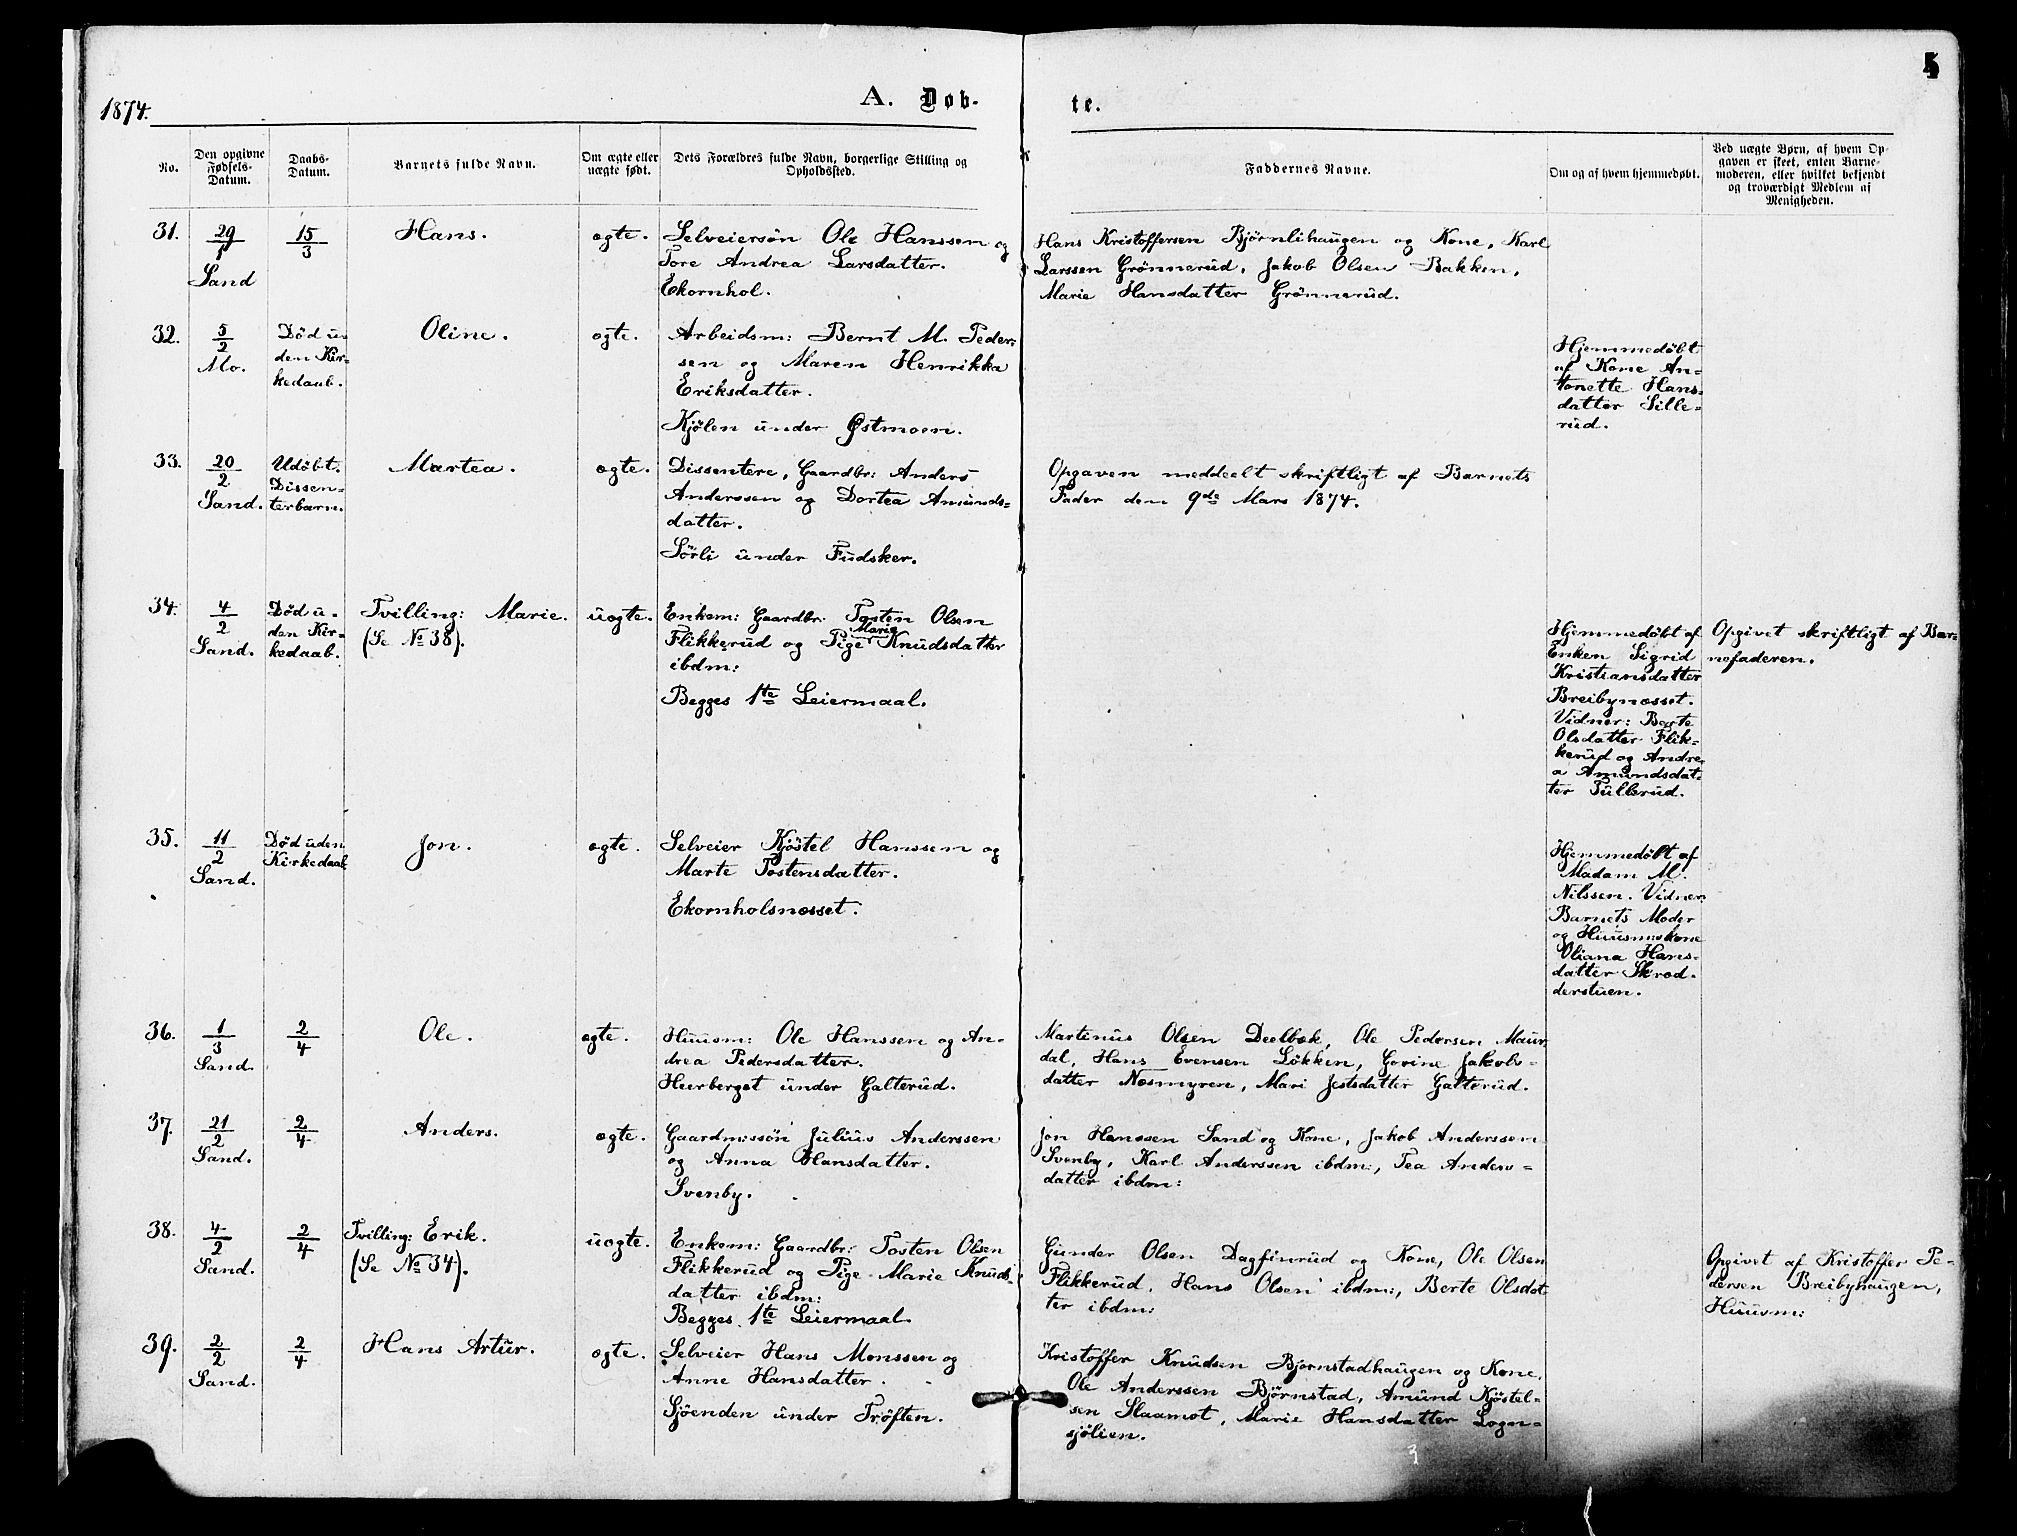 1874.
A. Døb-
te.
5
No.
Den opgivne
Fødsels-
Datum.
Daabs-
Datum.
Barnets fulde Navn.
Om ægte eller
uægte født.
Dets Forældres fulde Navn, borgerlige Stilling og
Opholdssted.
Faddernes Navne.
Om og af hvem hjemmedøbt.
Ved uægte Børn, af hvem Op-
gaven er skeet, enten Barne-
moderen, eller hvilket bekjendt
og troværdigt Medlem af
Menigheden.
31.
29/1
Sand
15/3
Hans.
ægte.
Selveiersøn Ole Hanssen og
Tore Andrea Larsdatter.
Ekornhol.
Hans Kristoffersen Bjørnlihaugen og Kone, Karl
Larssen Grönnerud, Jakob Olsen Bakken,
Marie Hansdatter Grönnerud.
32.
5/2
Mo.
Død u-
den Kir-
kedaab.
Oline.
ægte.
Arbeidsm: Bernt M. Peder-
sen og Maren Henrikka
Eriksdatter.
Kjölen under Østmoen.
Hjemmedøbt
af Kone An-
tonette Hans-
datter Sille-
rud.
33.
20/2
Sand.
Udøbt.
Dissen-
terbarn.
Martea.
ægte.
Dissentere, Gaardbr: Anders
Anderssen og Dortea Amunds-
datter.
Sörli under Fudsker.
Opgaven meddeelt skriftligt af Barnets
Fader den 9de Mars 1874.
34.
4/2
Sand.
Død u-
den Kir-
kedaab.
Tvilling: Marie.
(Se No 38).
uægte.
Enkem: Gaardbr: Tosten Olsen
Flikkerud og Pige Marie Knudsdatter
ibdm:
Begges 1te Leiermaal.
Hjemmedøbt af
Enken Sigrid
Kristiansdatter
Breibynæsset.
Vidner: Berte
Olsdatter Flik-
kerud og Andre-
a Amundsdat-
ter Tullerud.
Opgivet skriftligt af Bar-
nefaderen.
35.
11/2
Sand.
Død uden
Kirkedaab
Jon.
ægte.
Selveier Kjöstel Hanssen og
Marte Tostensdatter.
Ekornholsnæsset.
Hjemmedøbt af
Madam M.
Nilssen. Vidner:
Barnets Moder
og Huusmskone
Oliana Hans-
datter Skræd-
derstuen.
36.
1/3
Sand.
2/4
Ole.
ægte.
Huusm: Ole Hanssen og An-
drea Pedersdatter.
Hurberget under Galterud.
Martinus Olsen Deelbæk, Ole Pedersen Maur-
dal, Hans Evensen Løkken, Gorine Jakobs-
datter Næsmyren, Mari Jestsdatter Galterud.
37.
21/2
Sand.
2/4
Anders.
ægte.
Gaardm:sön Julius Anderssen
og Anna Hansdatter.
Svenby.
Jon Hanssen Sand og Kone, Jakob Anderssen
Svenby, Karl Anderssen ibdm:, Tea Anders-
datter ibdm:
38.
4/2
Sand.
2/4
Tvilling: Erik.
(Se No 34).
uægte.
Enkem: Gaardbr: Tosten Olsen
Flikkerud og Pige Marie Knuds-
datter ibdm:
Begges 1te Leiermaal.
Gunder Olsen Dagfinrud og Kone, Ole Olsen
Flikkerud, Hans Olsen ibdm:, Berte Olsdat
ter ibdm:
Opgivet af Kristoffer Pe-
dersen Breibyhaugen,
Huusm:
39.
2/2
Sand.
2/4
Hans Artur.
ægte.
Selveier Hans Monssen og
Anne Hansdatter.
Sjöenden under Trøften.
Kristoffer Knudsen Bjørnstadhaugen og Kone,
Ole Anderssen Björnstad, Amund Kjöstel-
sen Slaamot, Marie Hansdatter Logn-
sjölien.
3